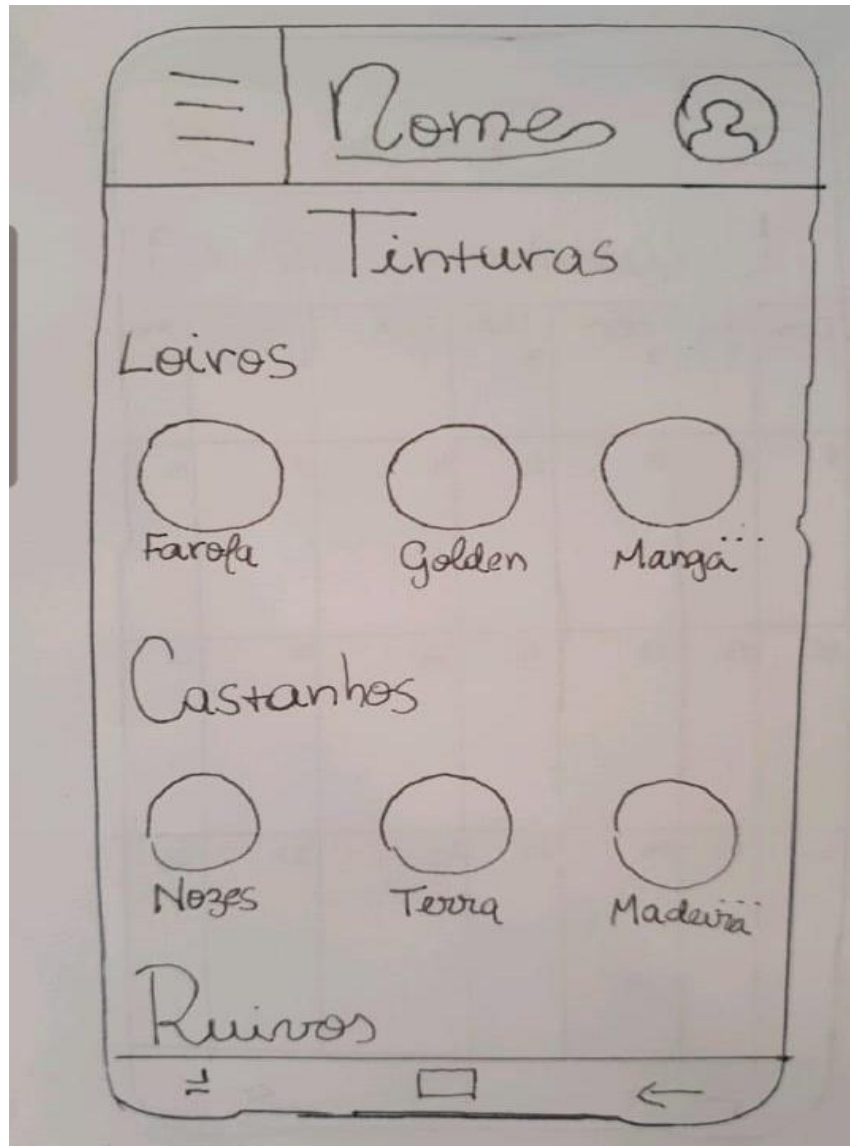 Nomes
Tinturas
Loiros
Farofa Golden Manga...
Castanhos
Nozes Terra Madeira...
Ruivos